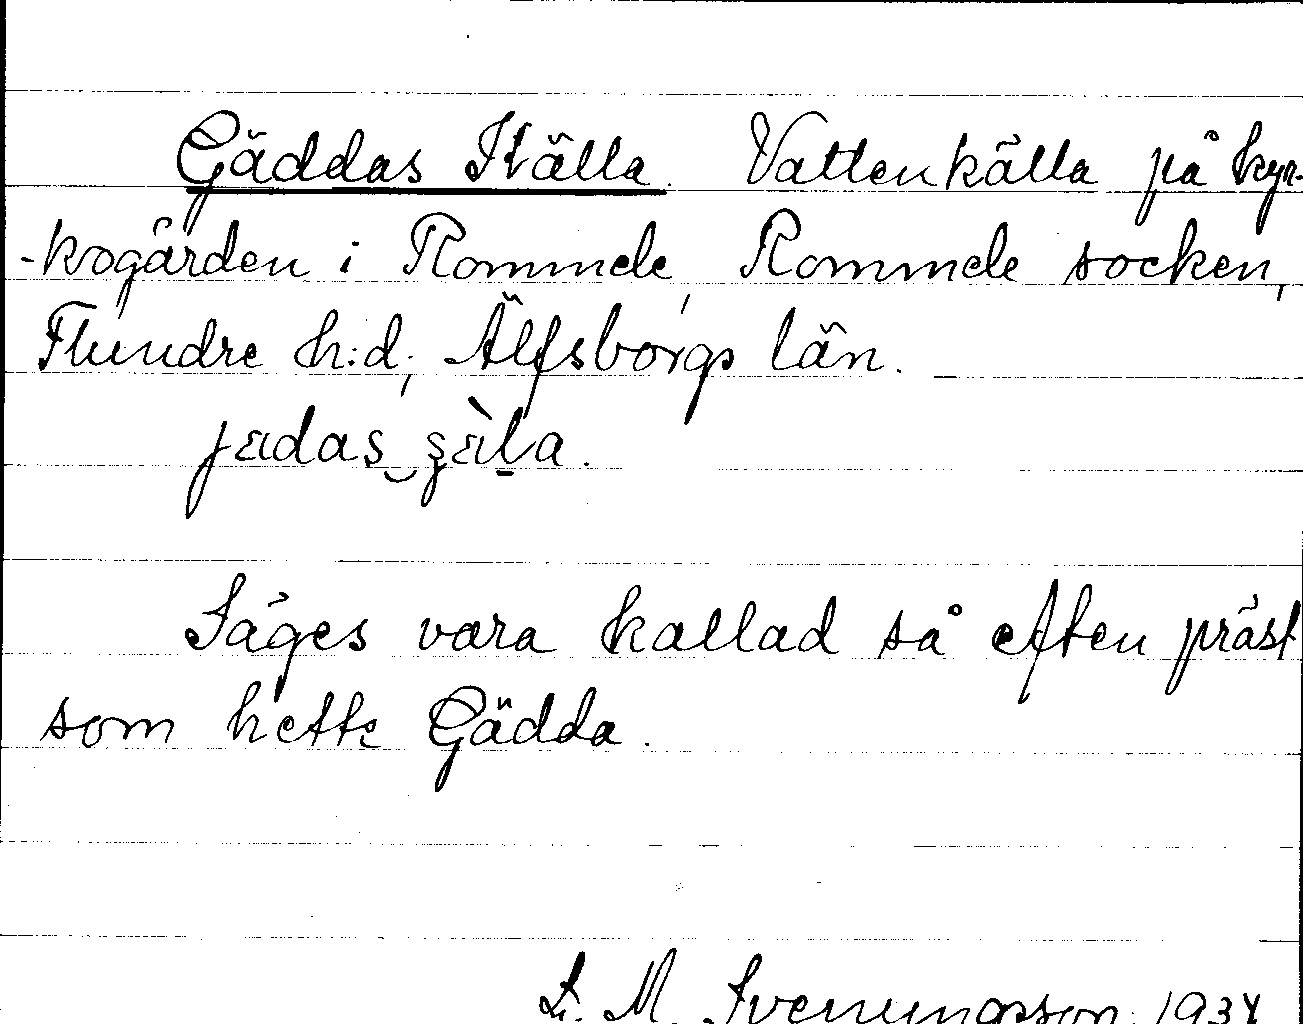 Gäddas Källa. Vattenkälla på kyr-
-kogården i Rommele, Rommele socken,
Flundre h:d, Älfsborgs län.
jɛdas‿ʂɛ̀la.
Säges vara kallad så efter präst
som hette Gädda.
S. M. Svenungsson 1934